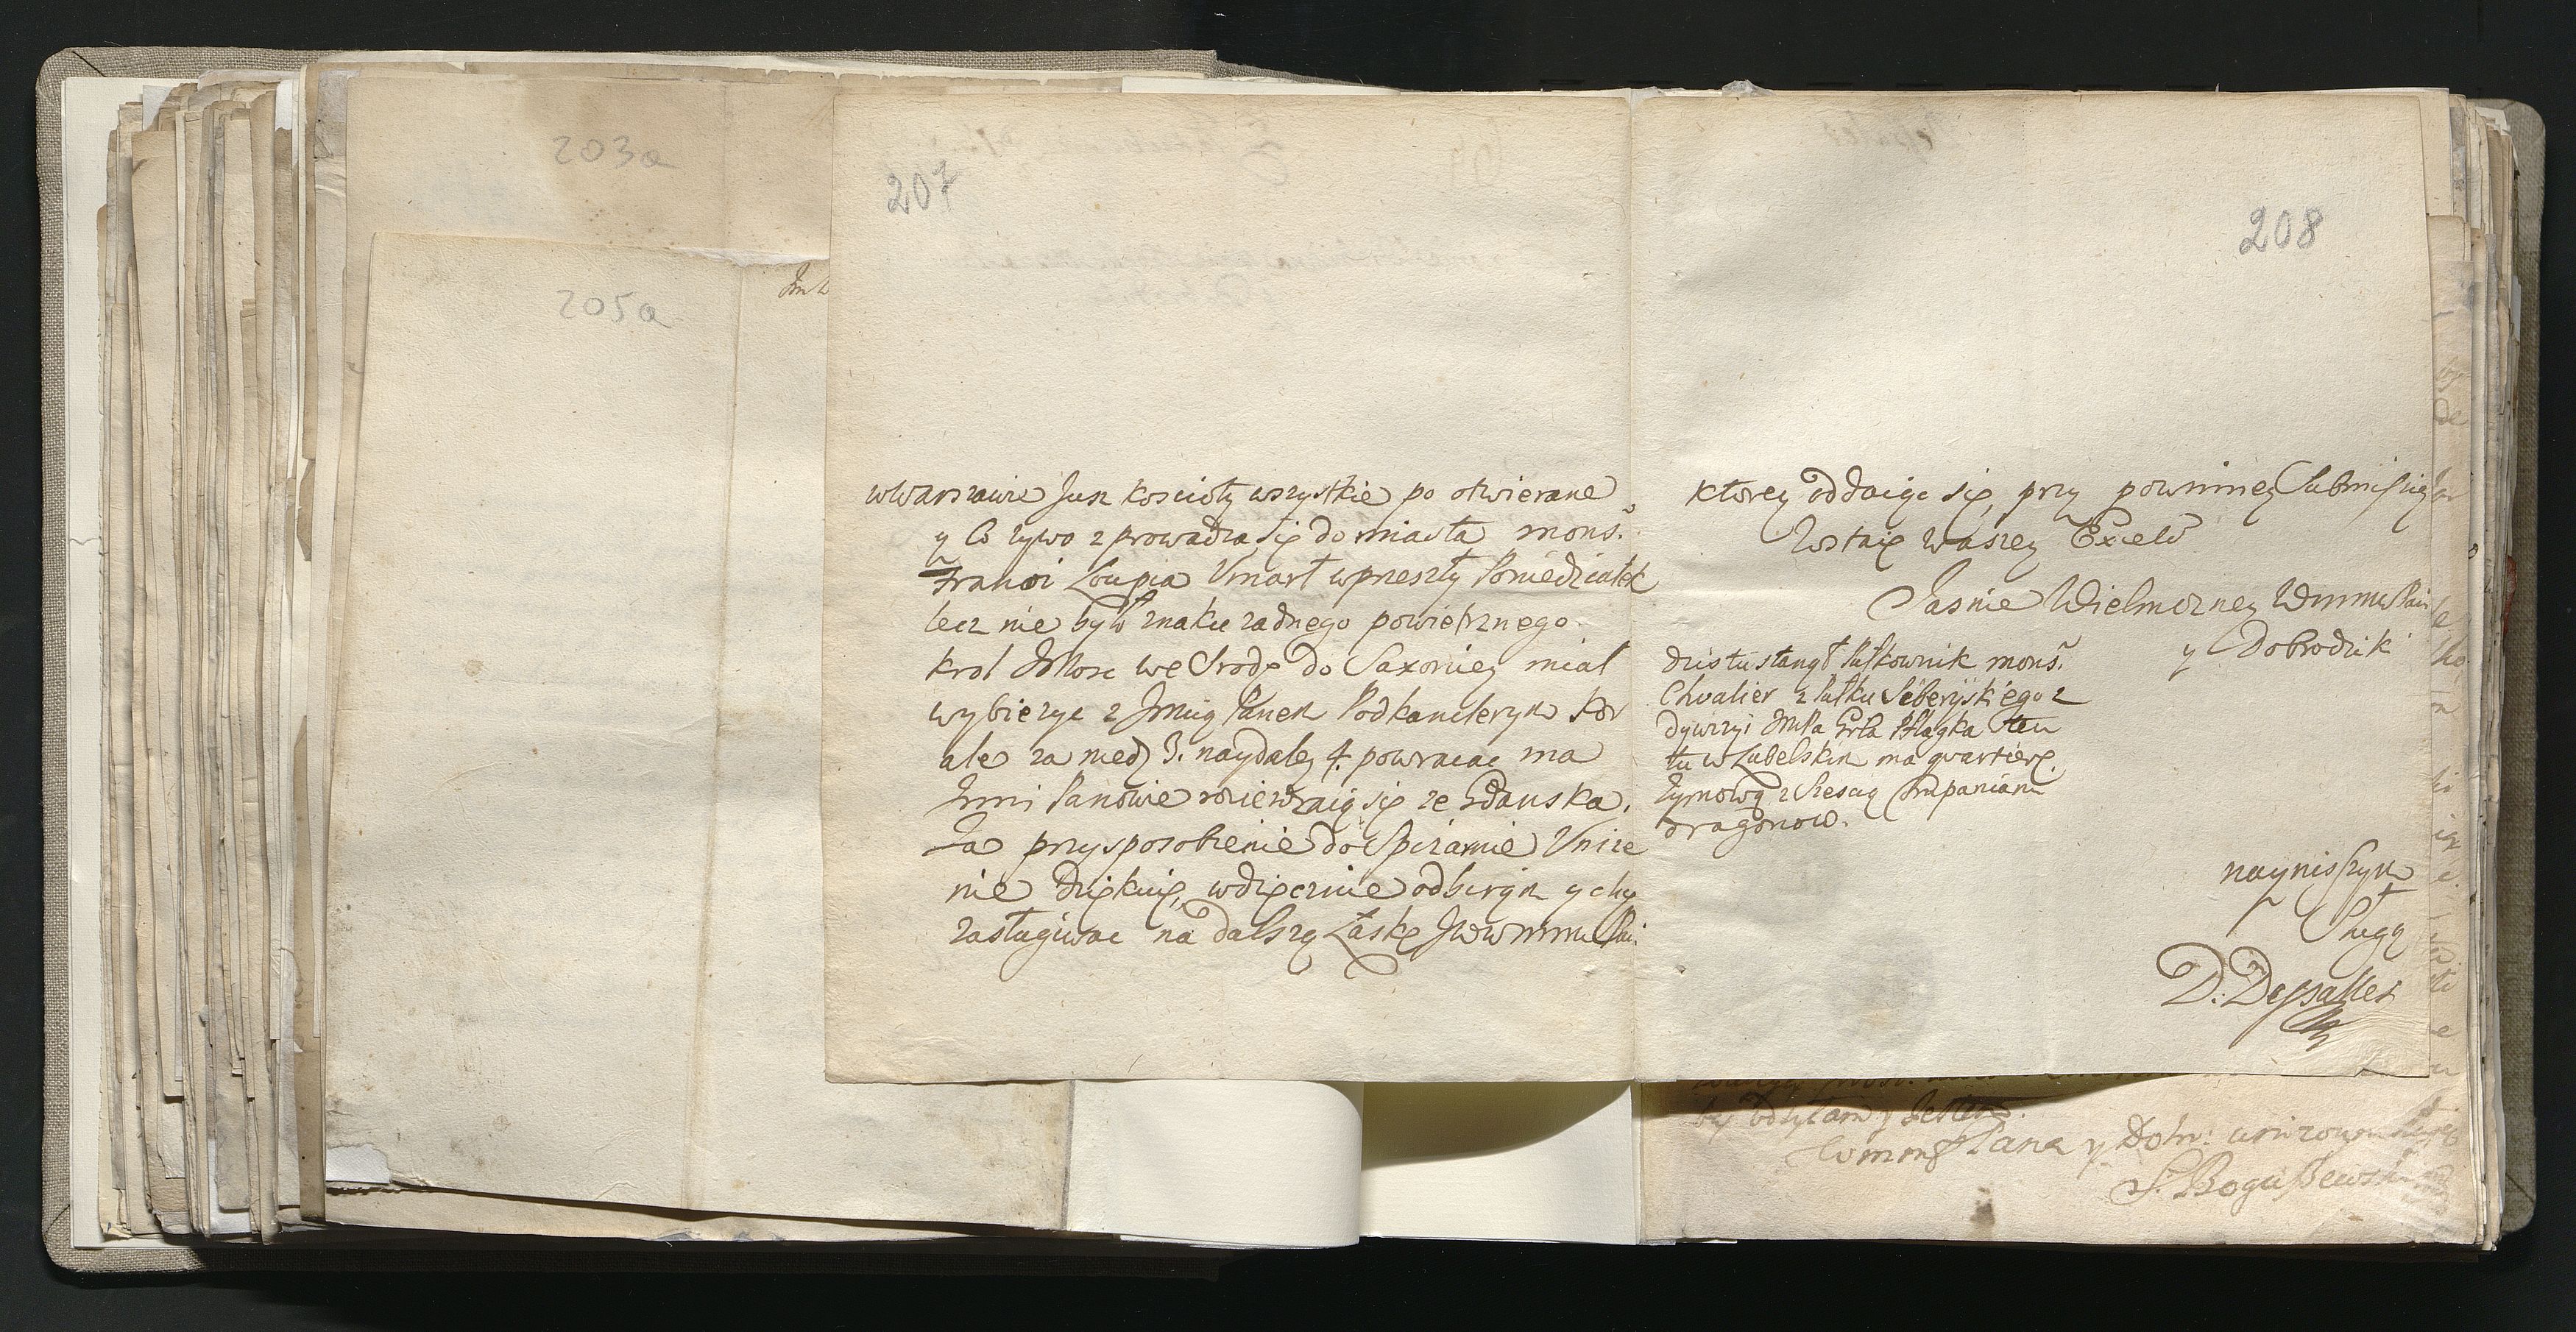 203a
205a
207
wWarszawie Jusz koscioły wszystkie po otwierane
y Co zywo zprowadza się do miasta mons.
Franci Loupia Vmarł wprzeszły Poniedziałek
lecz nie było znaku zadnego powietrznego.
Krol JMosc we Srodę do Saxoniey miał
wybierzyc z Jmcią Panem Podkanclerzym Kor
ale za nied 3. naydaley 4. powracac ma
Inni Panowie rozieżdzaią się ze Gdanska.
Za przysposobienie do Spizarnie Vnize
nie dziękuię, wdzięcznie odbieram y chcę
zasługiwac na dalszą Łaskę JWWmmm Pani
208
ktorey oddaiąc się, przy powinney Submissiey
zostaię Waszey Excell
Jasnie Wielmozney Wmmm Pani
y Dobrodzik
dzis tu stanął Pułkownik mons.
Chvalier z Pułku Seberyiskiego z
dywizyi JmPa Grła Pflugka ten
tu w Lubelskim ma gwartierę
zymową z Szescią Companiami
dragonow.
naynisszym
Sługą
D. Dessalles
by odsyłam y
Wmmm Pana y Dobr:
S. Boguszewski